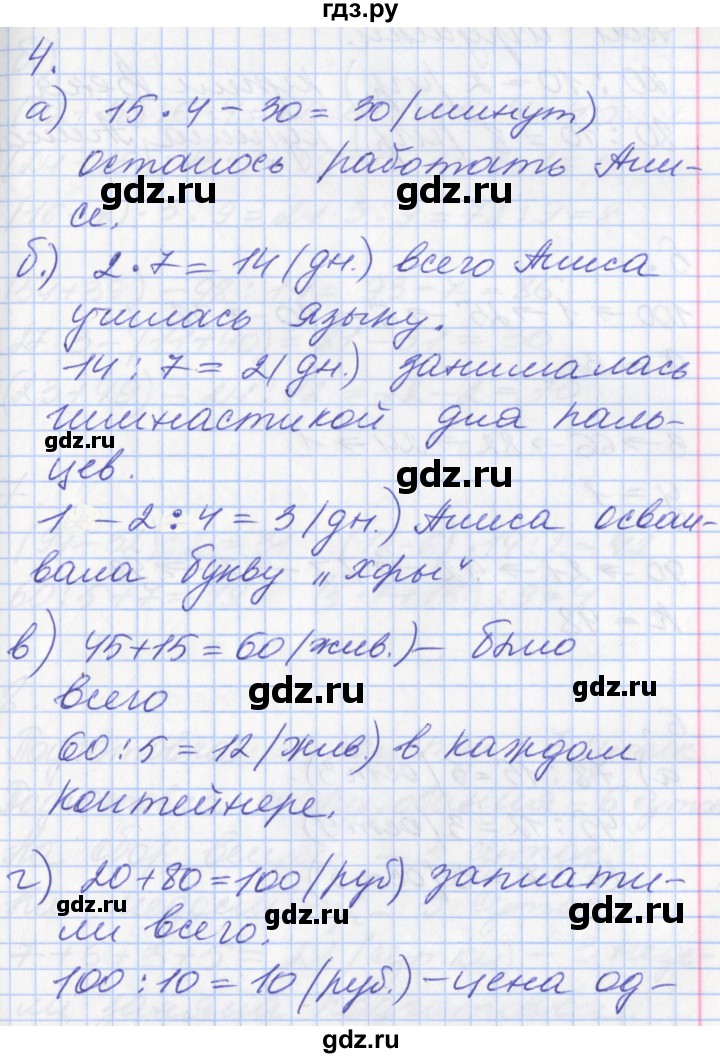 гдз.ру
4.
а) 15 · 4 - 30 = 30 (минут)
осталось работать Али-
се.
gdz.ru
gdz.ru
б.) 2 · 7 = 14 (дн.) всего Алиса
училась языку.
14 : 7 = 2 (дн.) занималась
гимнастикой для паль-
цев.
gdz.ru
gdz.ru
1 - 2 : 4 = 3 (дн.) Алиса осваи-
вала букву „хфры“.
в) 45 + 15 = 60 (жив.) - было
всего
gdz.ru
gdz.ru
60 : 5 = 12 (жив) в каждом
контейнере.
г) 20 + 80 = 100 (руб) заплати-
ли всего.
gdz.ru
gdz.ru
gdz.ru
100 : 10 = 10 (руб.) - цена од-
gdz.ru